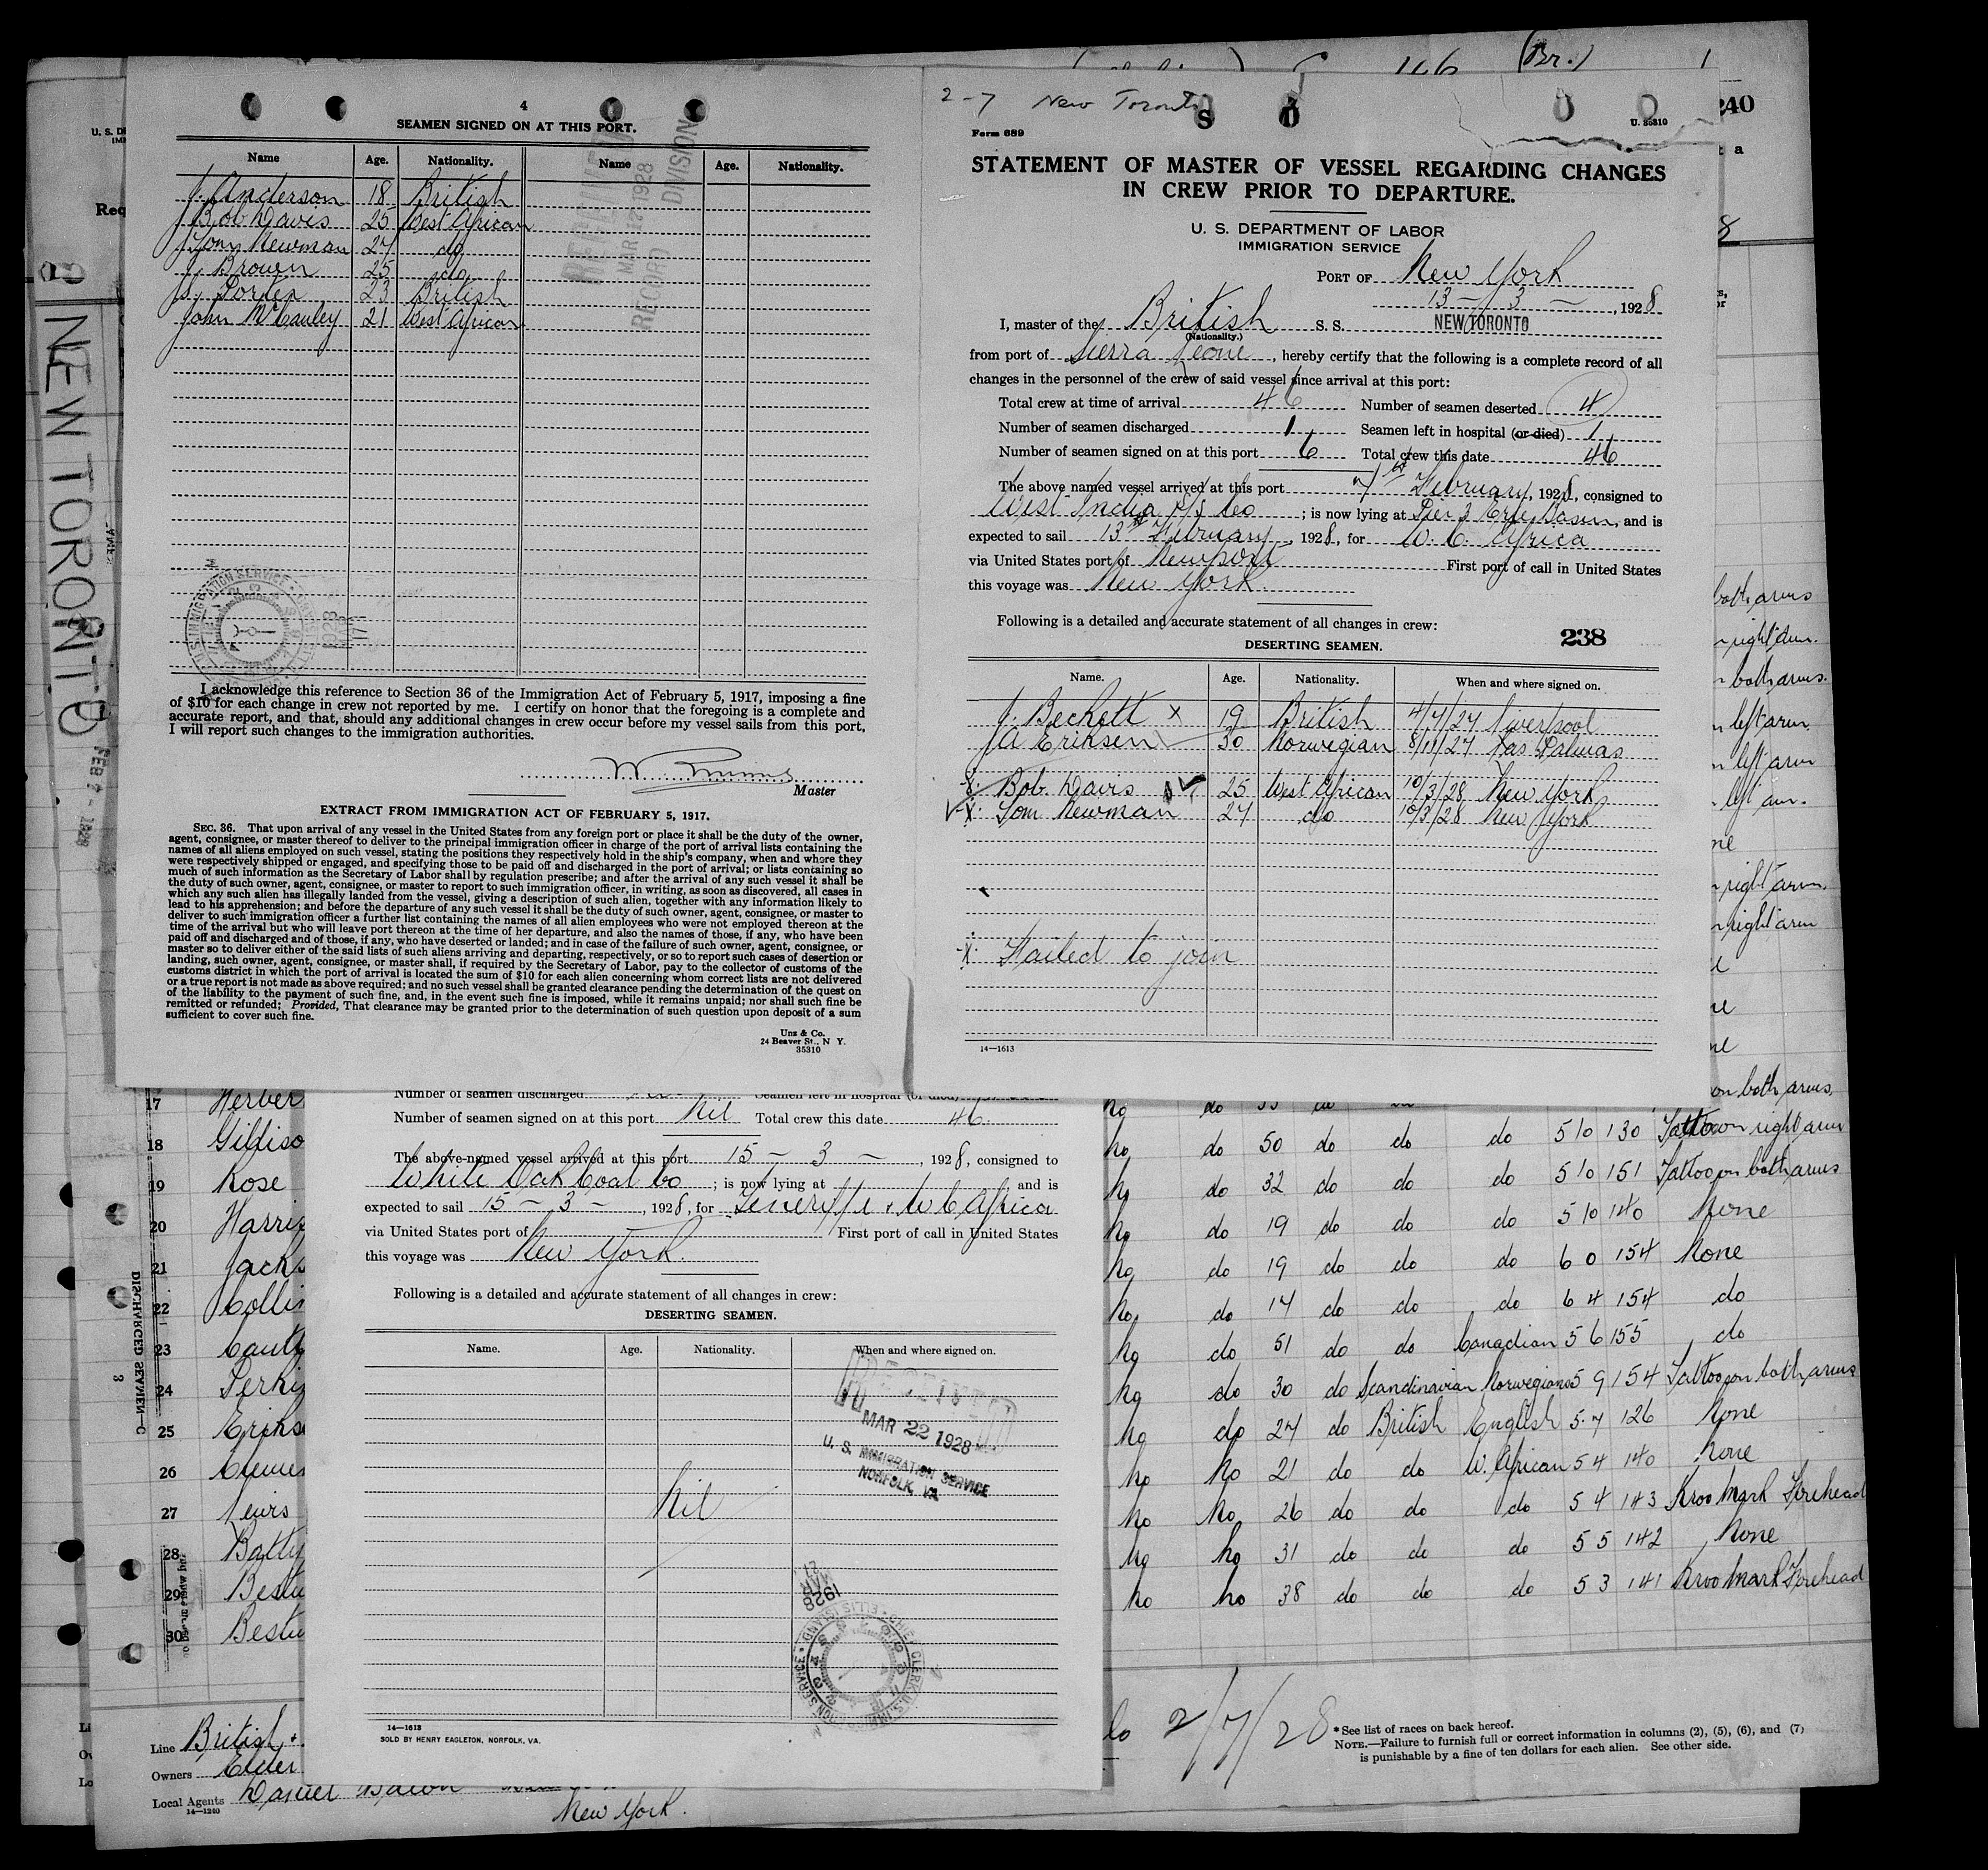 4
SEAMEN SIGNED ON AT THIS PORT.
Name Age. Nationality. Name Age. Nationality.
J. Anderson 18 British
Bob Davis 25 West African
Tom Newman 27 do
J. Brown 25 do
S. Porter 23 British
John McCauley 21 West African
MAR 17 1928
RECORD DIVISION
I acknowledge this reference to Section 36 of the Immigration Act of February 5, 1917, imposing a fine
of $10 for each change in crew not reported by me. I certify on honor that the foregoing is a complete and
accurate report, and that, should any additional changes in crew occur before my vessel sails from this port,
I will report such changes to the immigration authorities.
Master
EXTRACT FROM IMMIGRATION ACT OF FEBRUARY 5, 1917.
SEC. 36. That upon arrival of any vessel in the United States from any foreign port or place it shall be the duty of the owner,
agent, consignee, or master thereof to deliver to the principal immigration officer in charge of the port of arrival lists containing the
names of all aliens employed on such vessel, stating the positions they respectively hold in the ship's company, when and where they
were respectively shipped or engaged, and specifying those to be paid off and discharged in the port of arrival; or lists containing so
much of such information as the Secretary of Labor shall by regulation prescribe; and after the arrival of any such vessel it shall be
the duty of such owner, agent, consignee, or master to report to such immigration officer, in writing, as soon as discovered, all cases in
which any such alien has illegally landed from the vessel, giving a description of such alien, together with any information likely to
lead to his apprehension; and before the departure of any such vessel it shall be the duty of such owner, agent, consignee, or master to
deliver to such immigration officer a further list containing the names of all alien employees who were not employed thereon at the
time of the arrival but who will leave port thereon at the time of her departure, and also the names of those, if any, who have been
paid off and discharged and of those, if any, who have deserted or landed; and in case of the failure of such owner, agent, consignee, or
master so to deliver either of the said lists of such aliens arriving and departing, respectively, or so to report such cases of desertion or
landing, such owner, agent, consignee, or master shall, if required by the Secretary of Labor, pay to the collector of customs of the
customs district in which the port of arrival is located the sum of $10 for each alien concerning whom correct lists are not delivered
or a true report is not made as above required; and no such vessel shall be granted clearance pending the determination of the quest on
of the liability to the payment of such fine, and, in the event such fine is imposed, while it remains unpaid; nor shall such fine be
remitted or refunded; Provided, That clearance may be granted prior to the determination of such question upon deposit of a sum
sufficient to cover such fine.
Unz & Co.
24 Beaver St., N Y.
35310
2-7 New Toronto
Form 689
U. 35310
STATEMENT OF MASTER OF VESSEL REGARDING CHANGES
IN CREW PRIOR TO DEPARTURE.
U. S. DEPARTMENT OF LABOR
IMMIGRATION SERVICE
PORT OF New York
13 - 3 - , 1928
I, master of the British S. S. NEW TORONTO
(Nationality.)
from port of Sierra Leone, hereby certify that the following is a complete record of all
changes in the personnel of the crew of said vessel since arrival at this port:
Total crew at time of arrival 46 Number of seamen deserted 4
Number of seamen discharged 1 Seamen left in hospital (or died) 1
Number of seamen signed on at this port 6 Total crew this date 46
The above named vessel arrived at this port 7th February, 1928, consigned to
West India S/S Co ; is now lying at Pier 3 Erie Basin, and is
expected to sail 13th February, 1928, for W. C. Africa
via United States port of Newport First port of call in United States
this voyage was New York.
Following is a detailed and accurate statement of all changes in crew:
238
DESERTING SEAMEN.
Name. Age. Nationality. When and where signed on.
J. Beckett x 19 British 4/7/27 Liverpool
A Eriksen 30 Norwegian 8/11/27 Las Palmas
x Bob Davis 25 West African 10/3/28 New York
x Tom Newman 27 do 10/3/28 New York
x Failed to join
14—1613
NEW TORONTO
FEB 7 - 1928
(Br.)
240
both arms
right arm.
both arms.
left arm.
left arm
left arm.
right arm.
right arm
on both arms.
Number of seamen discharged Seamen left in hospital (or died)
Number of seamen signed on at this port Nil Total crew this date 46
The above-named vessel arrived at this port 15 - 3 - , 1928, consigned to
White Oak Coal Co ; is now lying at and is
expected to sail 15 - 3 - , 1928, for Teneriffe & W C Africa
via United States port of First port of call in United States
this voyage was New York.
Following is a detailed and accurate statement of all changes in crew:
DESERTING SEAMEN.
Name. Age. Nationality. When and where signed on.
RECEIVED
MAR 22 1928
U. S. IMMIGRATION SERVICE
NORFOLK, VA.
Nil
MAR 27 1928
14—1613
SOLD BY HENRY EAGLETON, NORFOLK, VA.
DISCHARGED SEAMEN—C
3
17 Herber
18 Gilliso
19 Rose
20 Harri
21 Jacks
22 Collin
23 Caut
24 Perki
25 Eriks
26 Clemen
27
28 Batty
29
30
no do 50 do do do 5 10 130 Tattoo on right arm
no do 32 do do do 5 10 151 Tattoo on both arms
no do 19 do do do 5 10 140 None
no do 19 do do do 6 0 154 None
no do 14 do do do 6 4 154 do
no do 51 do do Canadian 5 6 155 do
no do 30 do Scandinavian Norwegian 5 9 154 Tattoo on both arms
no do 27 do British English 5 7 126 None
no no 21 do do W. African 5 4 140 None
no no 26 do do do 5 4 143 Kroo Mark Forehead
no no 31 do do do 5 5 142 None
no no 38 do do do 5 3 141 Kroo Mark Forehead
Line British &
Owners Elder
Local Agents Daniel Bacon
New York.
14—1240
2/7/28
*See list of races on back hereof.
NOTE.—Failure to furnish full or correct information in columns (2), (5), (6), and (7)
is punishable by a fine of ten dollars for each alien. See other side.